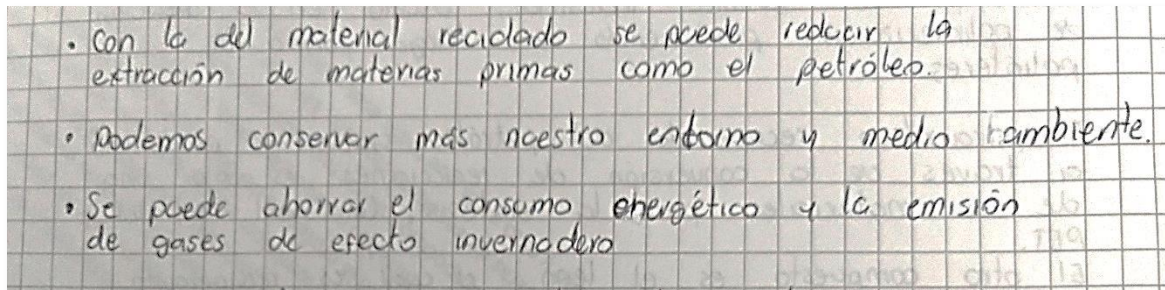 • Con la del material reciclado se puede reducir la
extracción de materias primas como el petróleo.
• Podemos conservar más nuestro entorno y medio ambiente.
• Se puede ahorrar el consumo energético y la emisión
de gases de efecto invernadero